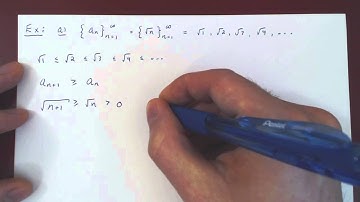 Ex: a) {aₙ}ₙ₌₁^∞ = {√n}ₙ₌₁^∞ = √1, √2, √3, √4, ...
√1 ≤ √2 ≤ √3 ≤ √4 ≤ ...
aₙ₊₁ ≥ aₙ
√(n+1) ≥ √n > 0